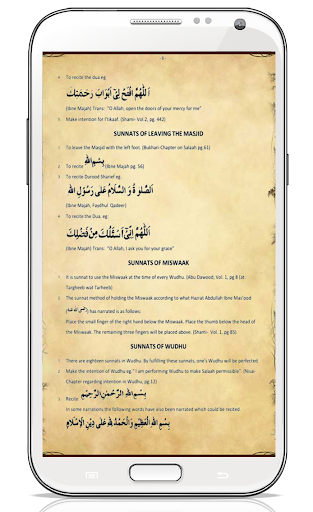 -8-
4 To recite the dua eg
اَللّٰهُمَّ افْتَحْ لِىْ اَبْوَابَ رَحْمَتِكَ
(Ibne Majah) Trans: "O Allah, open the doors of your mercy for me"
5 Make intention for I'tikaaf. (Shami- Vol 2, pg. 442)
SUNNATS OF LEAVING THE MASJID
1 To leave the Masjid with the left foot. (Bukhari Chapter on Salaah pg.61)
2 To recite بِسْمِ اللهِ (Ibne Majah pg. 56)
3 To recite Durood Sharief eg.
اَلصَّلٰوةُ وَ السَّلَامُ عَلٰى رَسُوْلِ اللهِ
(Ibne Majah, Faydhul Qadeer)
4 To recite the Dua. eg:
اَللّٰهُمَّ اِنِّىْ اَسْئَلُكَ مِنْ فَضْلِكَ
(Ibne Majah) Trans: "O Allah, I ask you for your grace"
SUNNATS OF MISWAAK
1 It is sunnat to use the Miswaak at the time of every Wudhu. (Abu Dawood, Vol. 1, pg 8 (at.
Targheeb wat Tarheeb)
2 The sunnat method of holding the Miswaak according to what Hazrat Abdullah Ibne Mas'ood
has narrated is as follows:
Place the small finger of the right hand below the Miswaak. Place the thumb below the head of
the Miswaak. The remaining three fingers will be placed above (Shami- Vol. 1, pg 85)
SUNNATS OF WUDHU
There are eighteen sunnats in Wudhu. By fulfilling these sunnats, one's Wudhu will be perfected
Make the intention of Wudhu eg." I am performing Wudhu to make Salaah permissible". (Nisai-
Chapter regarding intention in Wudhu, pg 12)
Recite بِسْمِ اللهِ الرَّحْمٰنِ الرَّحِيْمِ
In some narrations the following words have also been narrated which could be recited.
بِسْمِ اللهِ الْعَظِيْمِ وَ الْحَمْدُ لِلّٰهِ عَلٰى دِيْنِ الْاِسْلَامِ